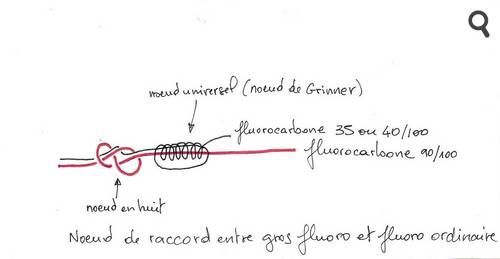 noeud universel (noeud de Grinner)
fluorocarbone 35 ou 40/100
fluorocarbone 90/100
noeud en huit
Noeud de raccord entre gros fluoro et fluoro ordinaire